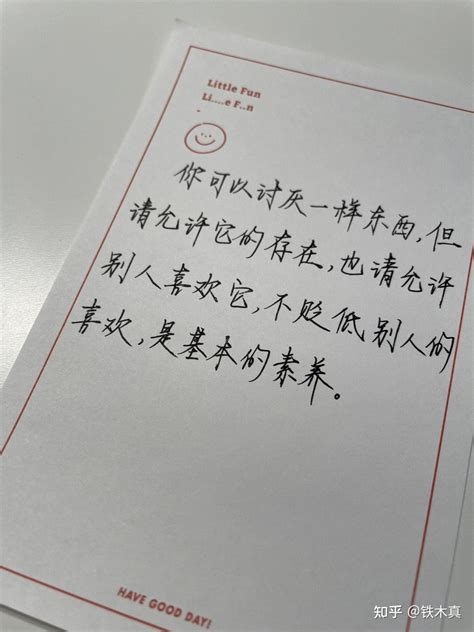 Little Fun
Li....e F..n
你可以讨灰一样东西,但
请允许它的存在,也请允许
别人喜欢它,不贬低别人的
喜欢,是基本的素养。
HAVE GOOD DAY!
知乎 @铁木真